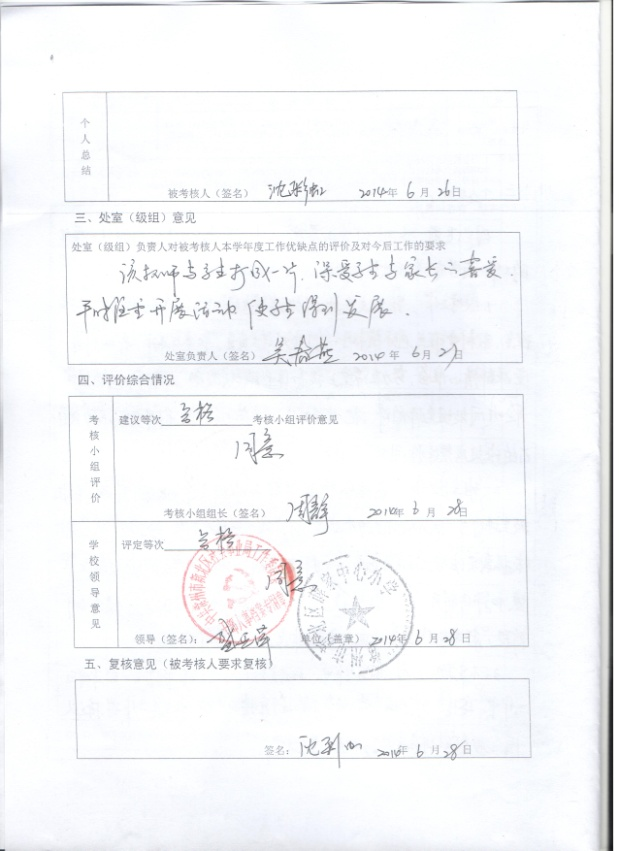 个人总结
被考核人（签名） 沈彩虹 2014年 6月 26日
三、处室（级组）意见
处室（级组）负责人对被考核人本学年度工作优缺点的评价及对今后工作的要求
该教师与学生打成一片，深受学生与家长之喜爱，
平时注重开展活动，使学生得到发展．
处室负责人（签名） 2014年 6月 27日
四、评价综合情况
考核小组评价
建议等次 合格 考核小组评价意见
同意
考核小组组长（签名） 周静 2014年 6月 28日
学校领导意见
评定等次 合格
同意
领导（签名）： 单位（盖章） 2014年 6月 28日
五、复核意见（被考核人要求复核）
签名： 2014年 6月 28日